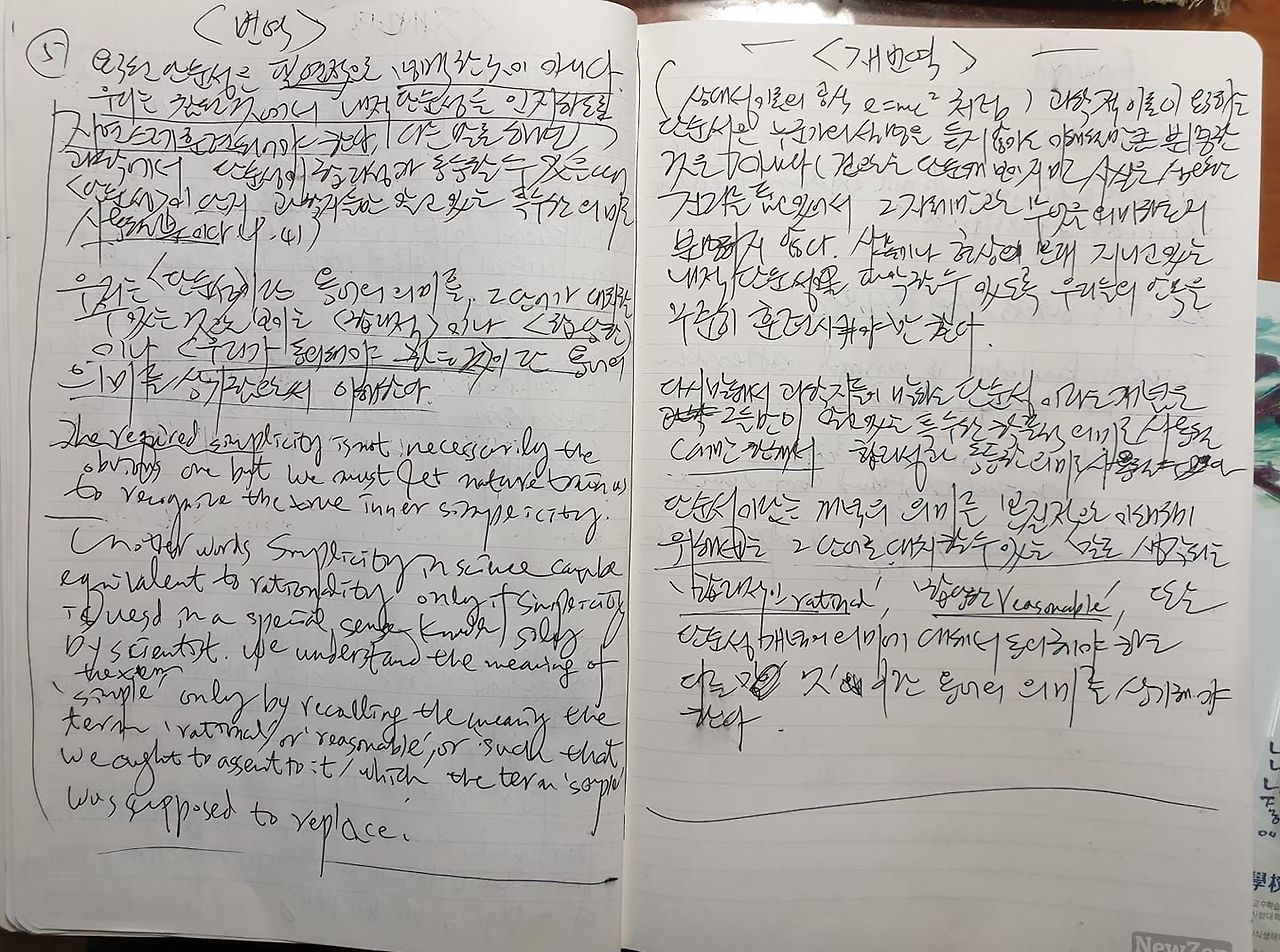 ⑤ <번역>
요구된 단순성은 필연적으로 명백한 것이 아니다.
우리는 참된 내적 단순성을 인지하도록
자연스레 훈련되어야 한다, 다른 말로 하면
과학에서 단순성이 합리성과 동등할 수 있는 것은
<단순성>이 단지 과학자들만 알고 있는 특수한 의미로
사용될 때이다 (p.41)
우리는 <단순성>이란 용어의 의미를, 그 단어가 대치할
수 있는 것으로 보이는 <합리적>이나 <합당한>
이나 <우리가 동의해야 하는 것>이란 용어의
의미를 상기함으로써 이해한다.
The required simplicity is not necessarily the
obvious one but we must let nature train us
to recognize the true inner simplicity.
In other words Simplicity in science can be
equivalent to rationality only if Simplicity
is uesd in a special sense known solly
by scientist. We understand the meaning of
the term
'simple' only by recalling the meaning the
term 'rational' or 'reasonable', or 'such that
we ought to assent to it' which the term 'simple'
was supposed to replace.
<재번역>
(상대성이론의 공식 e=mc² 처럼) 과학적 이론이 의미하는
단순성은 누군가의 설명을 듣지 않아도 이해될 만큼 분명한
것은 아니다 (겉으로는 단순해 보이지만 사실은 심오한
진리를 품고 있어서 그 자체만으로는 무엇을 의미하는지
분명하지 않다. 사물이나 현상이 본래 지니고 있는
내적 단순성을 파악할 수 있도록 우리들의 안목을
부단히 훈련시켜야만 한다.
다시 말해서 과학자들이 말하는 단순성 이라는 개념을
그들만이 알고 있는 특수한 의미로 사용될
때만 합리성과 동등한 의미로
단순성이라는 개념의 의미를 본질적으로 이해하기
위해서는 그 단어로 대치할 수 있는 말로 생각되는
'합리적인 rational', '합당한 reasonable', 또는
단순성 개념의 의미에 대해서 동의해야 하는
다른 것 이란 용어의 의미를 상기해야
한다.
學校
NewZen